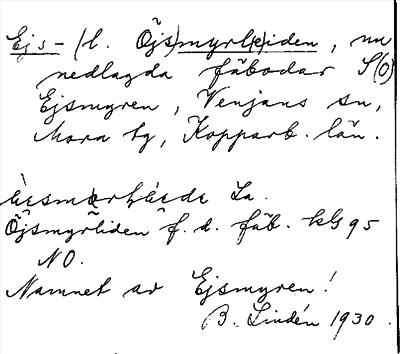 Ejs- (l. Öjs)myrl(e)iden, nu
nedlagda fäbodar S(O)
Ejsmyren, Venjans sn,
Mora tg, Kopparb. län.
La.
Öjsmyrliden f. d. fäb. kbl 95
NO.
Namnet av Ejsmyren!
B. Lindén 1930.